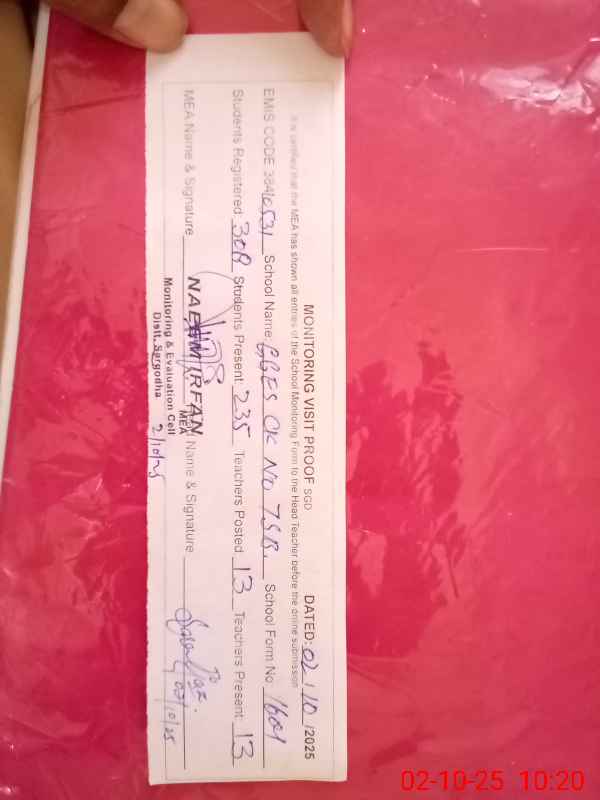 MONITORING VISIT PROOF SGD DATED: 02/10/2025
It is certified that the MEA has shown all entries of the School Monitoring Form to the Head Teacher before the online submission
EMIS CODE 38410531 School Name: GGES CK No 7SB. School Form No: 1604
Students Registered: 308 Students Present: 235 Teachers Posted 13 Teachers Present: 13
MEA Name & Signature Name & Signature
NAEEM IRFAN
MEA
Monitoring & Evaluation Cell
Distt. Sargodha
2/10/25
02/10/25
02-10-25 10:20